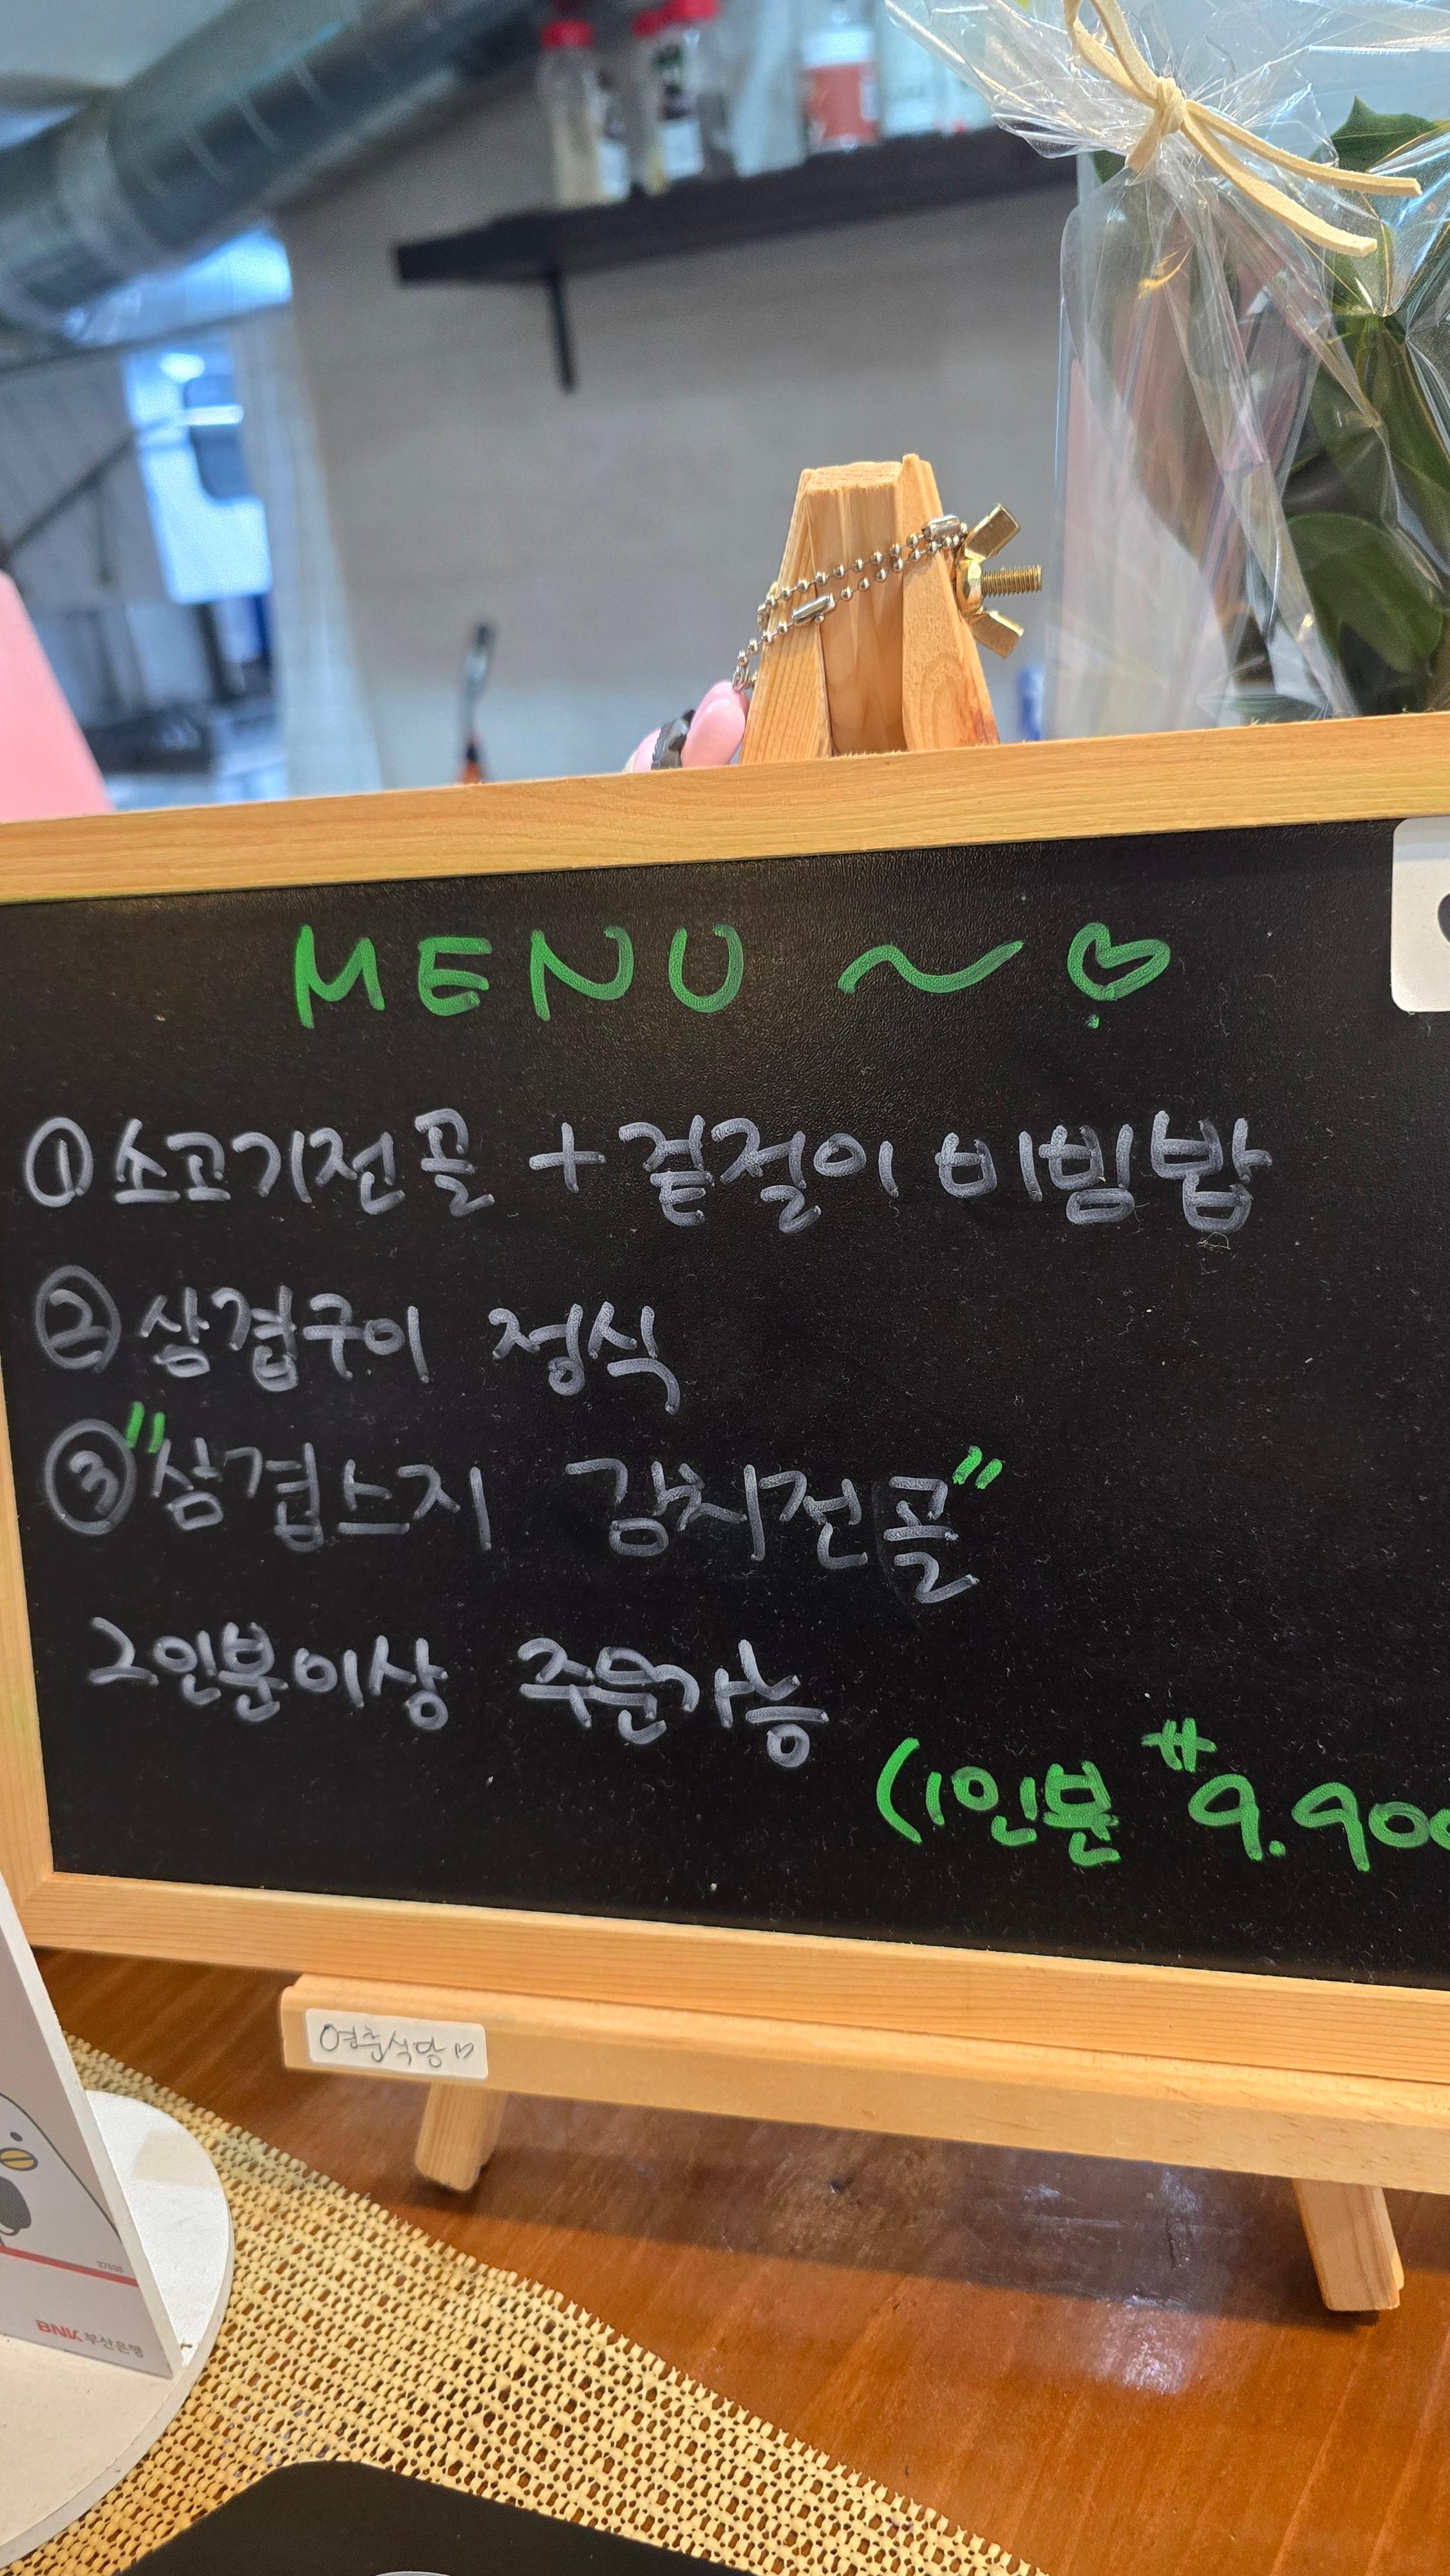 MENU ~ ♡
① 소고기전골 + 겉절이 비빔밥
② 삼겹구이 정식
③ "삼겹스지 김치전골"
2인분이상 주문가능
(1인분 #9.900
연춘식당 ♡
BNK 부산은행